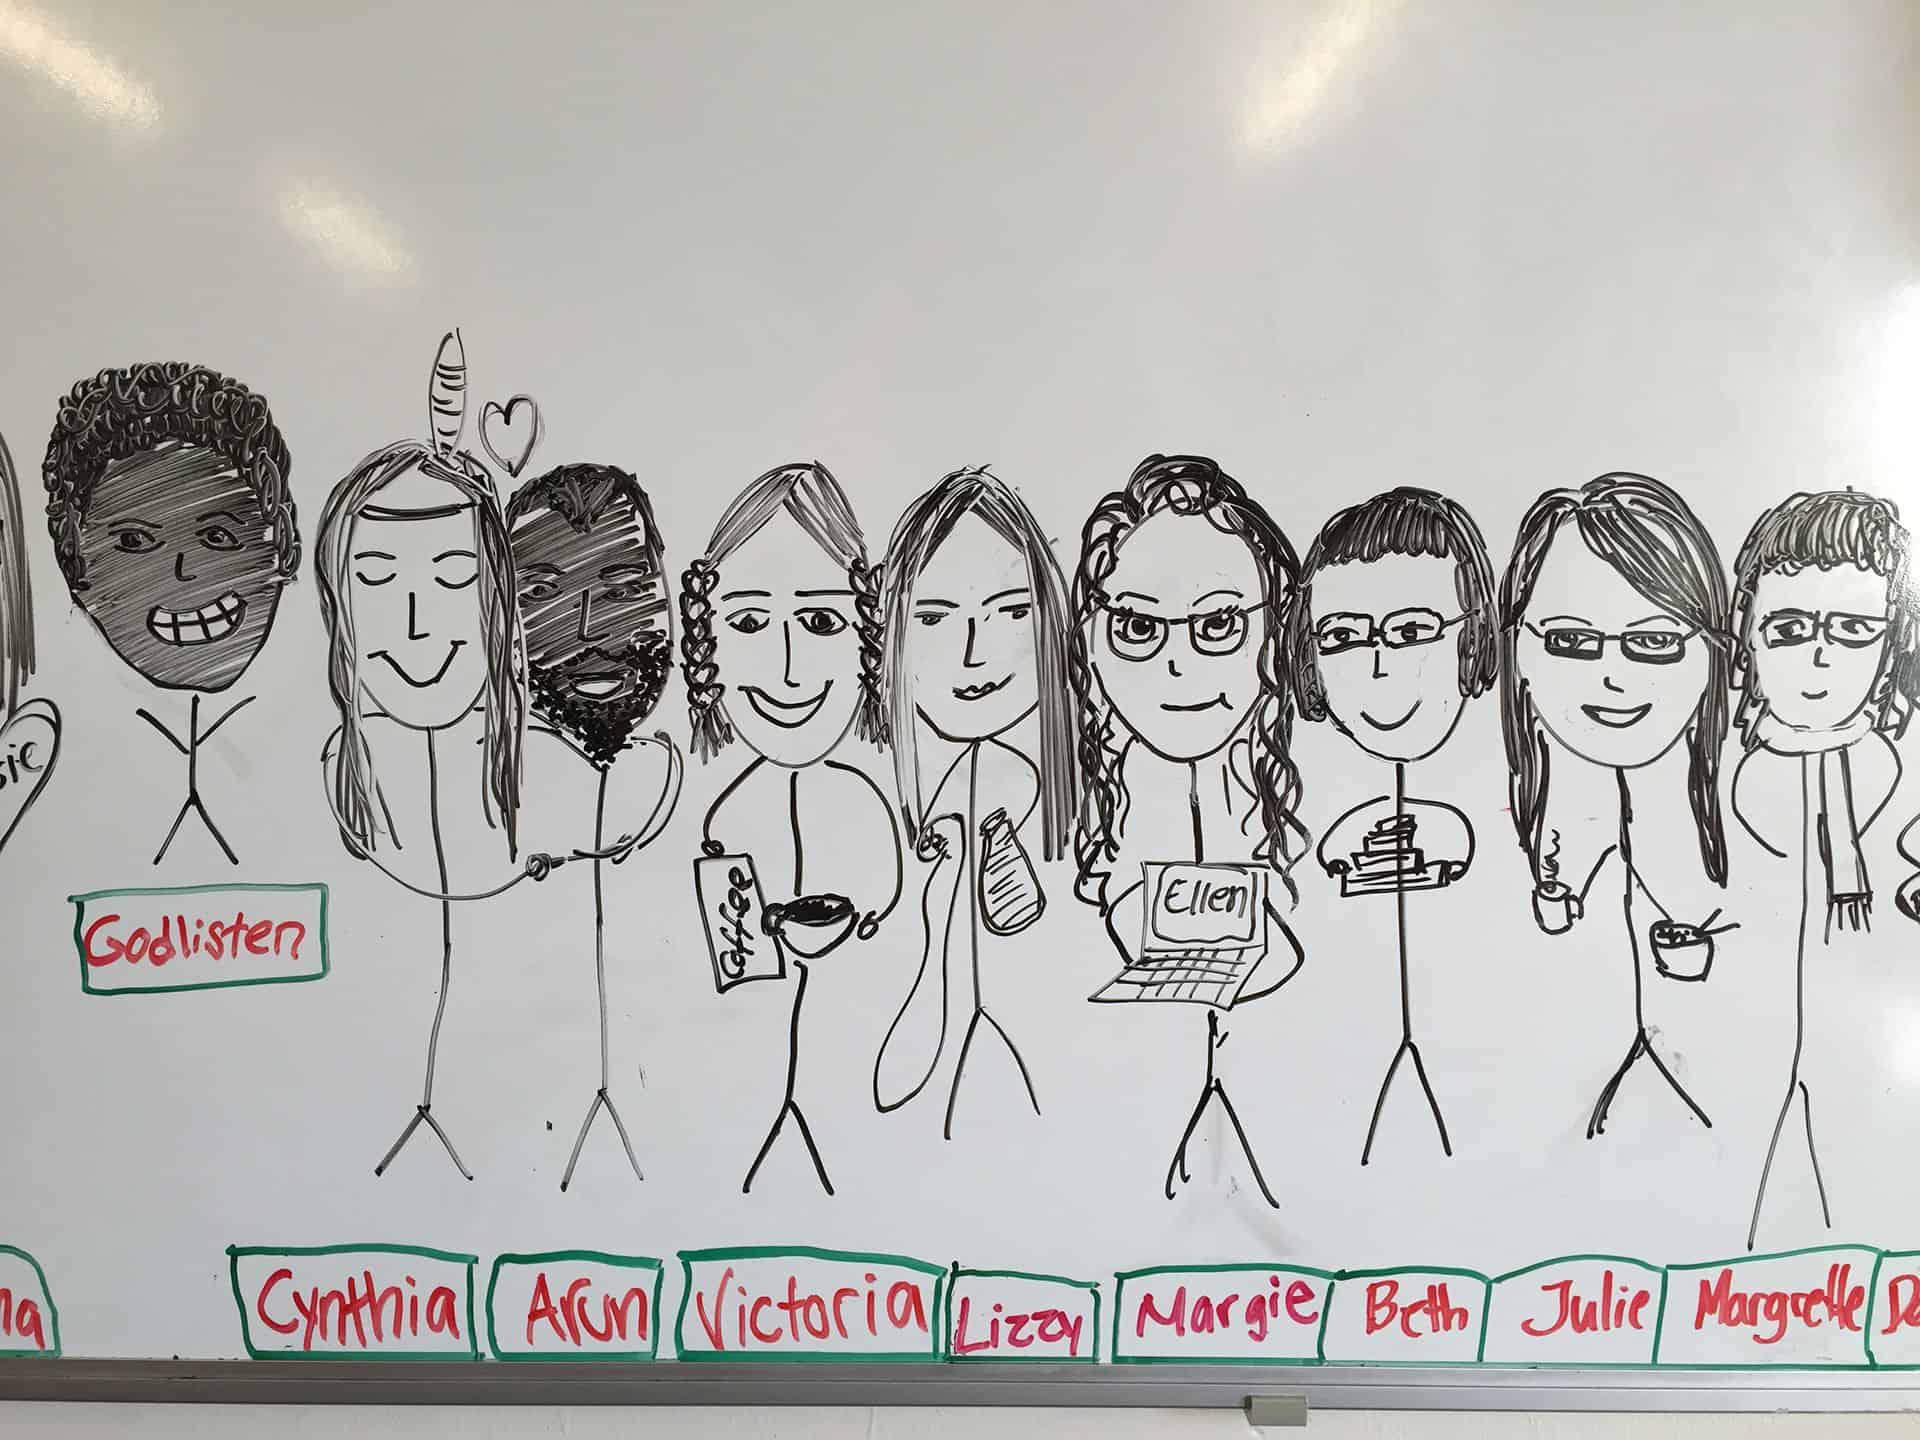 sic
Godlisten
Coffee
Ellen
na
Cynthia
Arun
Victoria
Lizzy
Margie
Beth
Julie
Margrette